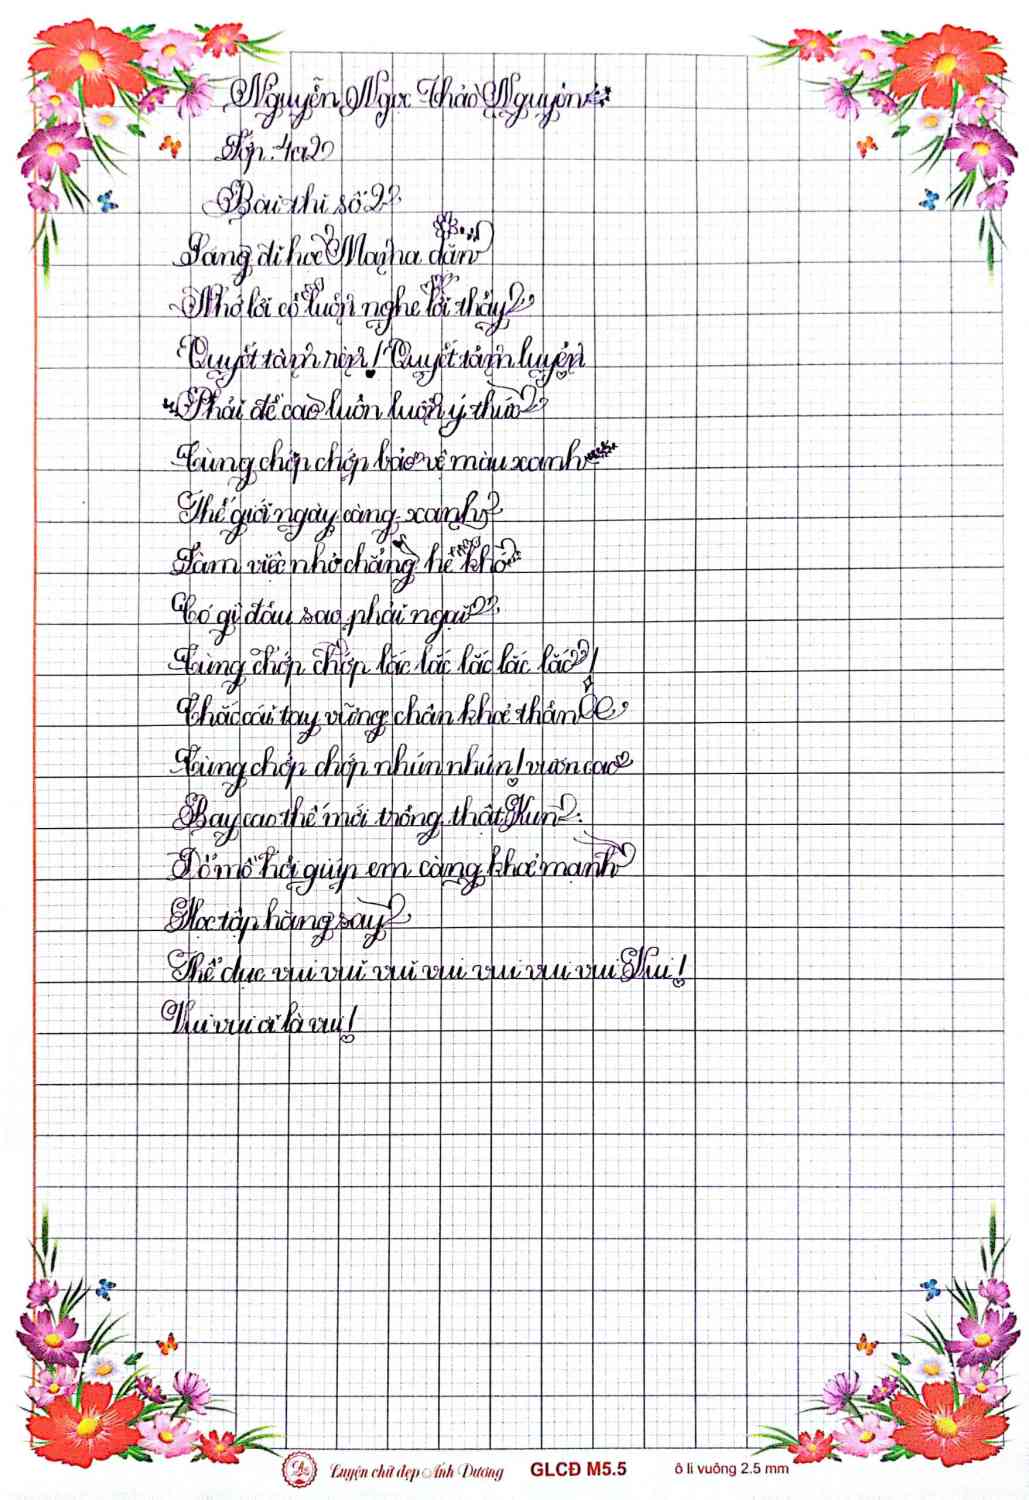 Nguyễn Ngọc Thảo Nguyên
Lớp: 4a2
Bài thi số 2
Sáng đi học Mama dặn
Nhớ lời cô luôn nghe lời thầy
Quyết tâm rèn! Quyết tâm luyện
Phải đề cao luôn luôn ý thức
Cùng chớp chớp bảo vệ màu xanh
Thế giới ngày càng xanh
Làm việc nhỏ chẳng hề khó
Có gì đâu sao phải ngại
Cùng chớp chớp lắc lắc lắc lắc lắc!
Chắc cái tay vững chân khoẻ thân
Cùng chớp chớp nhún nhún! vươn cao
Bay cao thế mới trông thật Kun
Đổ mồ hôi giúp em càng khoẻ mạnh
Học tập hăng say
Thể dục vui vui vui vui vui vui vui Vui!
Vui vui ơi là vui!
Luyện chữ đẹp Ánh Dương GLCĐ M5.5 ô li vuông 2.5 mm